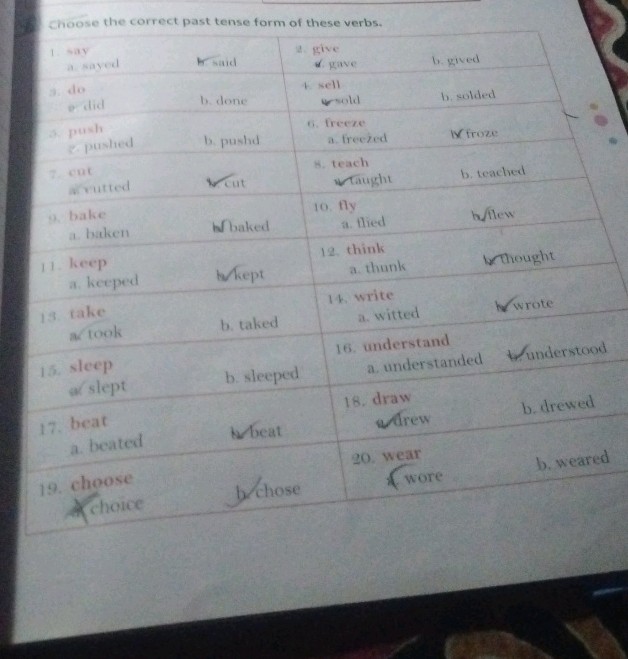 Choose the correct past tense form of these verbs.
1. say
a. sayed b. said
2. give
a. gave b. gived
3. do
a. did b. done
4. sell
a. sold b. solded
5. push
a. pushed b. pushd
6. freeze
a. freezed b. froze
7. cut
a. cutted b. cut
8. teach
a. taught b. teached
9. bake
a. baken b. baked
10. fly
a. flied b. flew
11. keep
a. keeped b. kept
12. think
a. thunk b. thought
13. take
a. took b. taked
14. write
a. witted b. wrote
15. sleep
a. slept b. sleeped
16. understand
a. understanded b. understood
17. beat
a. beated b. beat
18. draw
a. drew b. drewed
19. choose
a. choice b. chose
20. wear
a. wore b. weared